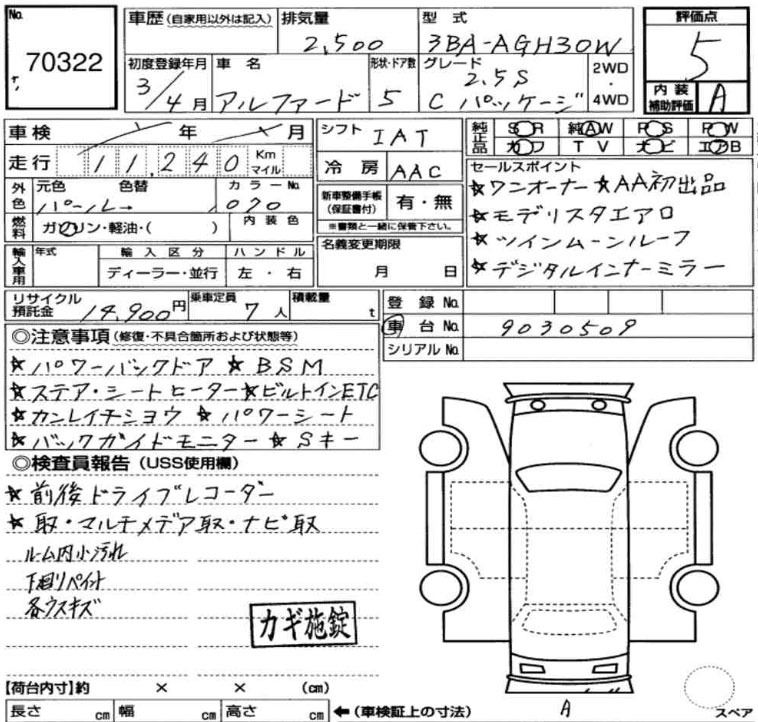 No. 70322
車歴 (自家用以外は記入) 排気量 2,500 型式 3BA-AGH30W 評価点 5
初度登録年月 3/4月 車名 アルファード 形状・ドア数 5 グレード 2.5S Cパッケージ 2WD・4WD 内装補助評価 A
車検 年 月 シフト IAT 純正品 SR 純AW PS PW
カワ TV ナビ エアB
走行 11,240 Km マイル 冷房 AAC セールスポイント
外色 元色 色替 パール→ カラーNo. 070 新車整備手帳(保証書付) 有・無 ※書類と一緒に保管下さい。
★ワンオーナー ★AA初出品
燃料 ガソリン・軽油・( ) 内装色 ★モデリスタエアロ
名義変更期限 月 日 ★ツインムーンルーフ
輸入車用 年式 輸入区分 ディーラー・並行 ハンドル 左・右 ★デジタルインナーミラー
リサイクル預託金 14,900円 乗車定員 7人 積載量 t 登録No.
車台No. 9030509
シリアルNo.
◎注意事項 (修復・不具合箇所および状態等)
★パワーバックドア ★BSM
★ステア・シートヒーター★ビルトインETC
★カンレイチシヨウ ★パワーシート
★バックガイドモニター ★Sキー
◎検査員報告 (USS使用欄)
★前後ドライブレコーダー
★取・マルチメデア取・ナビ取
ルーム内小汚れ
下廻リペイント
各ウスキズ
カギ施錠
【荷台内寸】約 × × (cm)
長さ cm 幅 cm 高さ cm ←(車検証上の寸法) A スペア